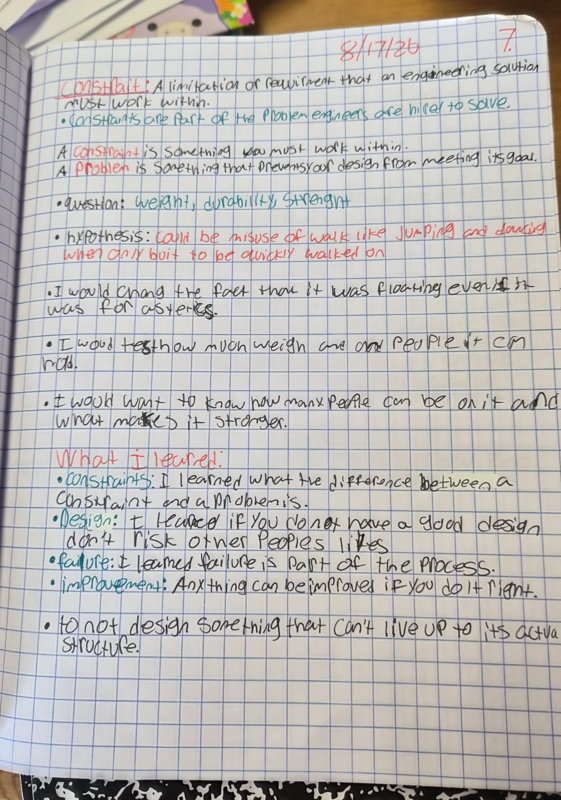 8/17/26 7.
Constrait: A limitation or requirment that an engineering solution
must work within.
• Constraints are part of the Problem engineers are hired to solve.
A constraint is something you must work within.
A Problem is something that prevens your design from meeting its goal.
• question: weight, durability, strenght
• hypothesis: Could be misuse of walk like Jumping and dancing
when only buit to be quickly walked on
• I would chang the fact that it was floating even if it
was for asyetics.
• I woud test how much weigh and and People it can
hold.
• I would want to know how many People can be on it and
what makes it stronger.
What I leared:
• Constraints: I learned what the difference between a
constraint and a problem is.
• Design: I learned if you do not have a good design
don't risk other Peoples lives
• failure: I learned failure is part of the process.
• improvement: Anything can be improved if you do it right.
• to not design something that can't live up to its actua
structure.